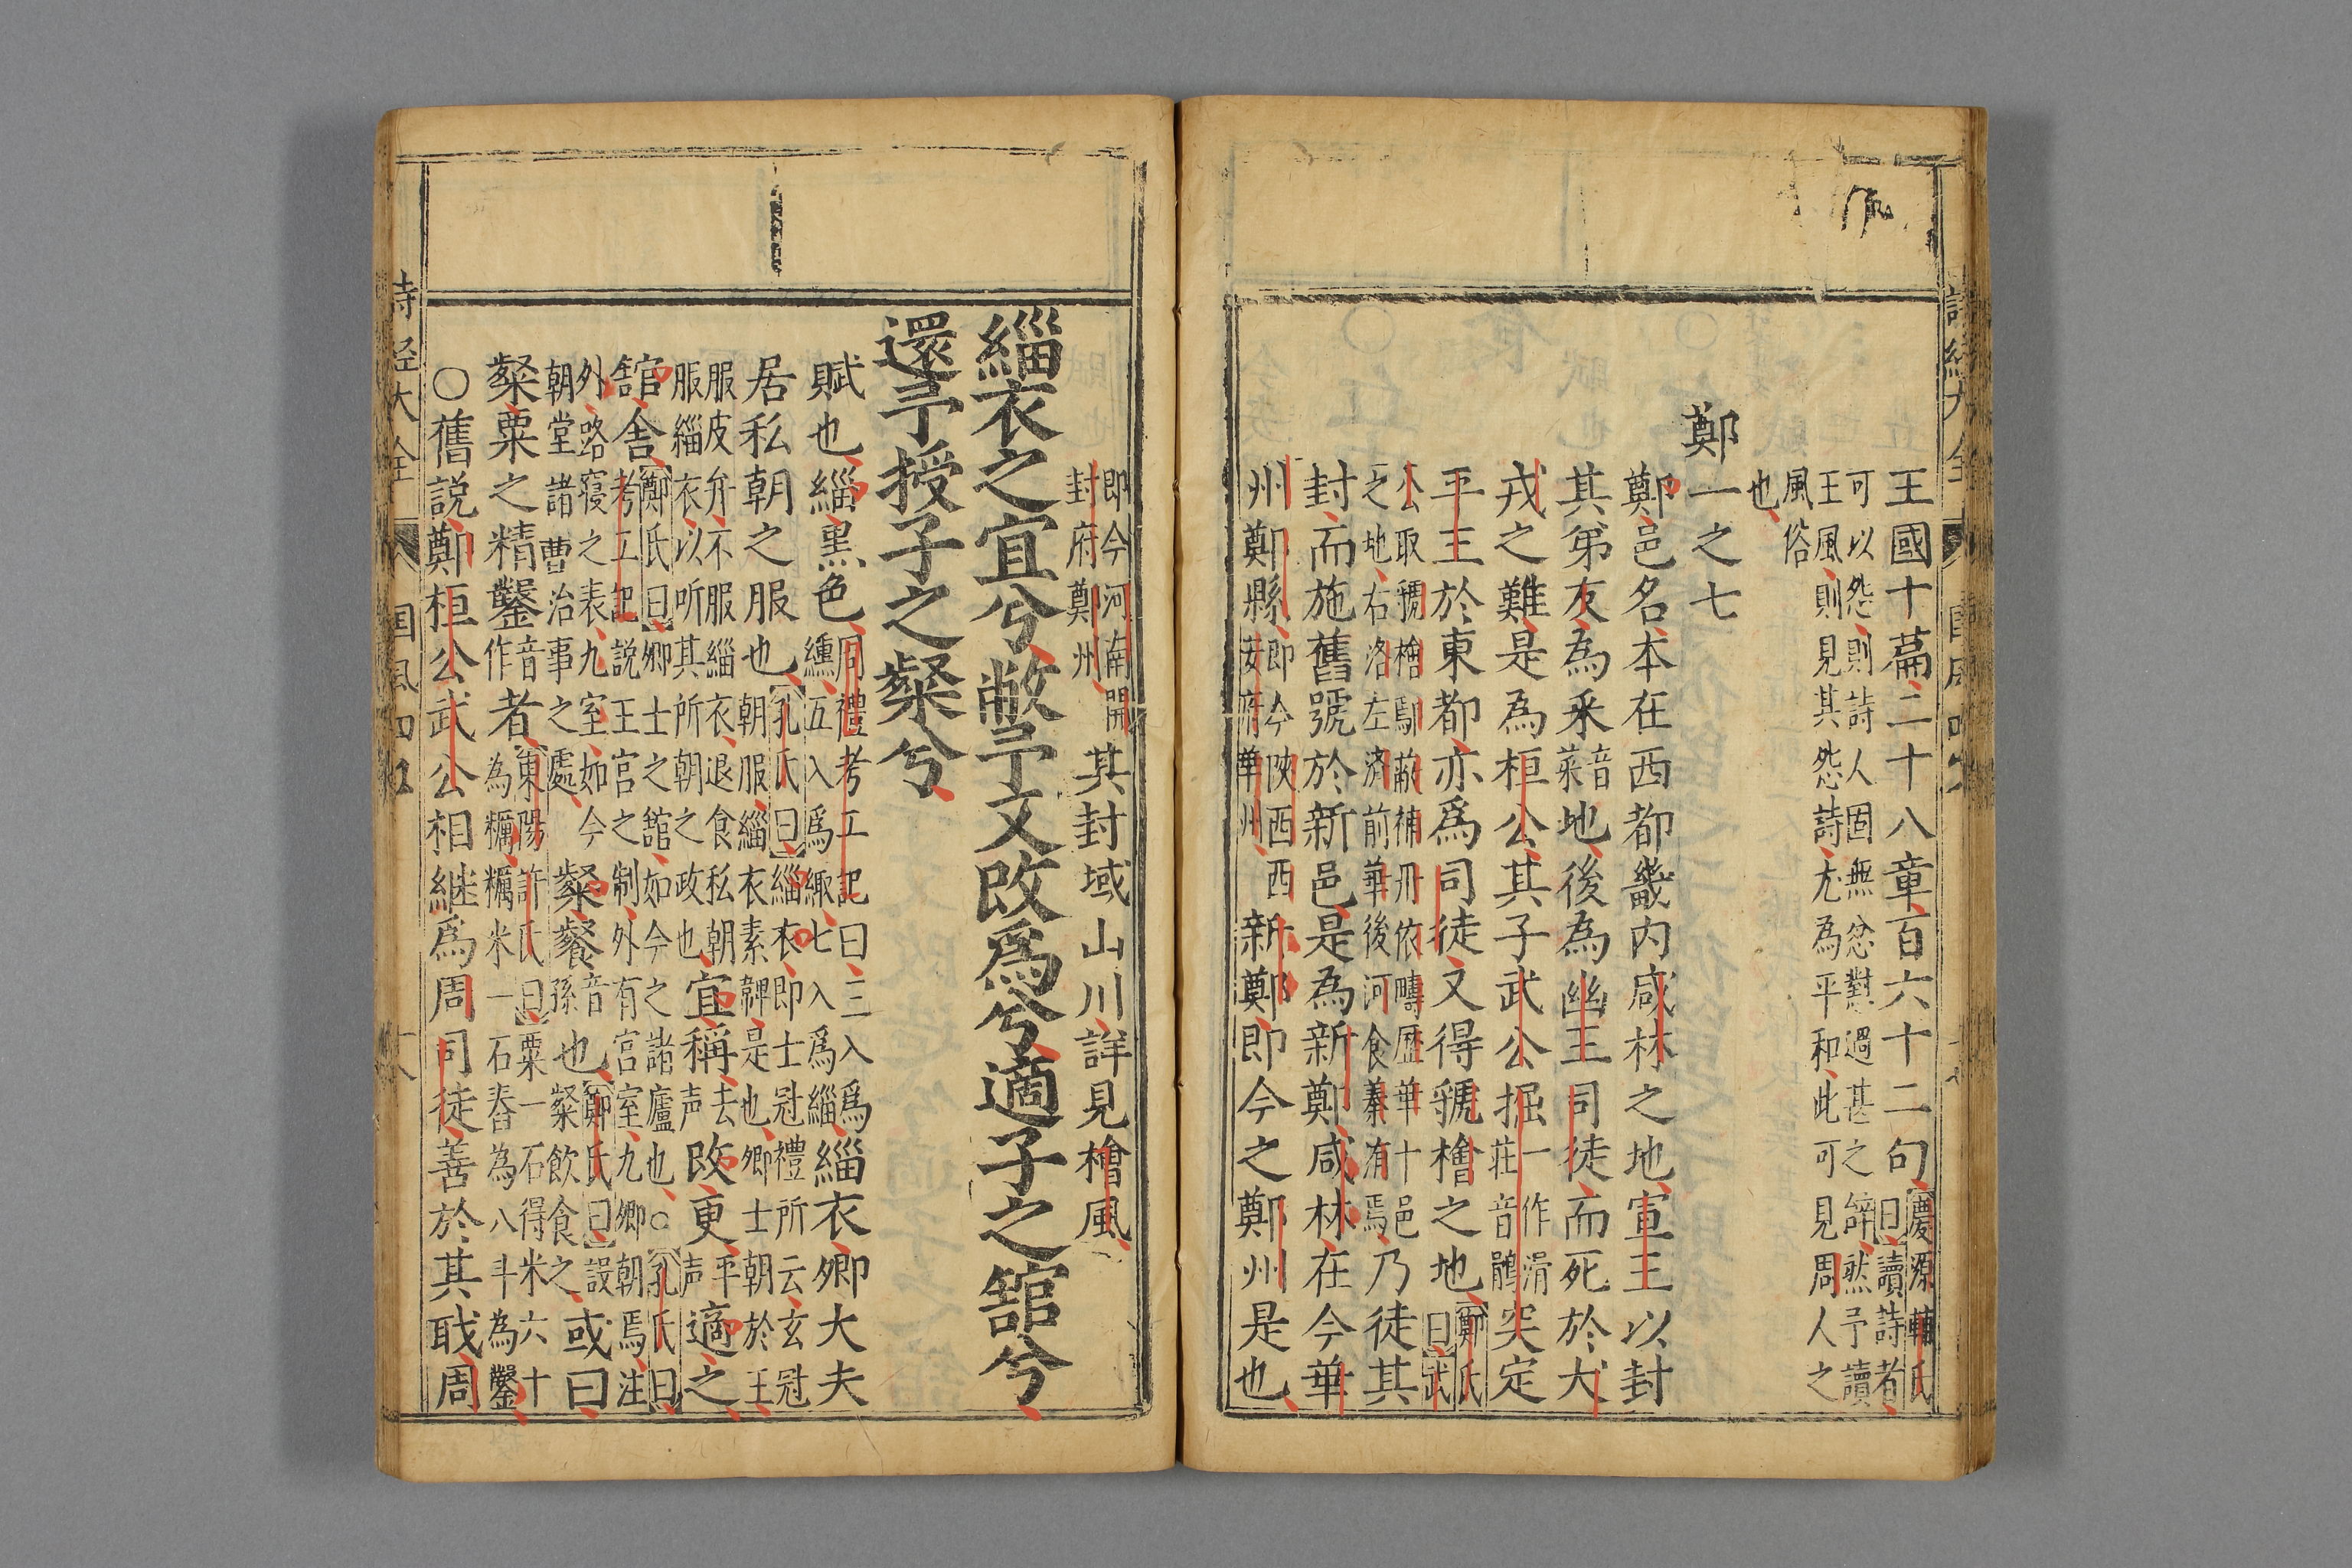 王國十篇二十八章百六十二句慶源輔氏曰讀詩者
可以怨則詩人固無忿懟過甚之辭然予讀
王風則見其怨詩尤為平和此可見周人之
風俗
也
鄭一之七
鄭邑名本在西都畿内咸林之地宣王以封
其弟友為采音菜地後為幽王司徒而死於犬
戎之難是為桓公其子武公掘一作滑莊音鶻突定
平王於東都亦爲司徒又得虢檜之地鄭氏曰武
公取虢檜鄢蔽補丹依疇歷華十邑
之地右洛左濟前華後河食溱洧焉乃徒其
封而施舊號於新邑是為新鄭咸林在今華
州鄭縣即今陝西西安府華州新鄭即今之鄭州是也
即今河南開封府鄭州其封域山川詳見檜風
緇衣之宜兮敝予又改爲兮適子之舘兮
還予授子之粲兮
賦也緇黒色周禮考工記曰三入爲纁五入爲緅七入爲緇緇衣卿大夫
居私朝之服也孔氏曰緇衣即士冠禮所云玄冠
朝服緇衣素韠是也卿士朝於王
服皮弁不服緇衣退食私朝
服緇衣以听其所朝之政也宜稱去声改更平声適之
舘舍鄭氏曰卿士之舘如今之諸廬也○孔氏曰
考工記說王宫之制外有宫室九卿朝焉注
外路寝之表九室如今
朝堂諸曹治事之處粲餐音孫也鄭氏曰設粲飲食之或曰
粲粟之精鑿音作者東陽許氏曰粟一石得米六十
為糲糲米一石舂為八斗為鑿
○舊説鄭桓公武公相継爲周司徒善於其职周
詩經大全
国風四
十八